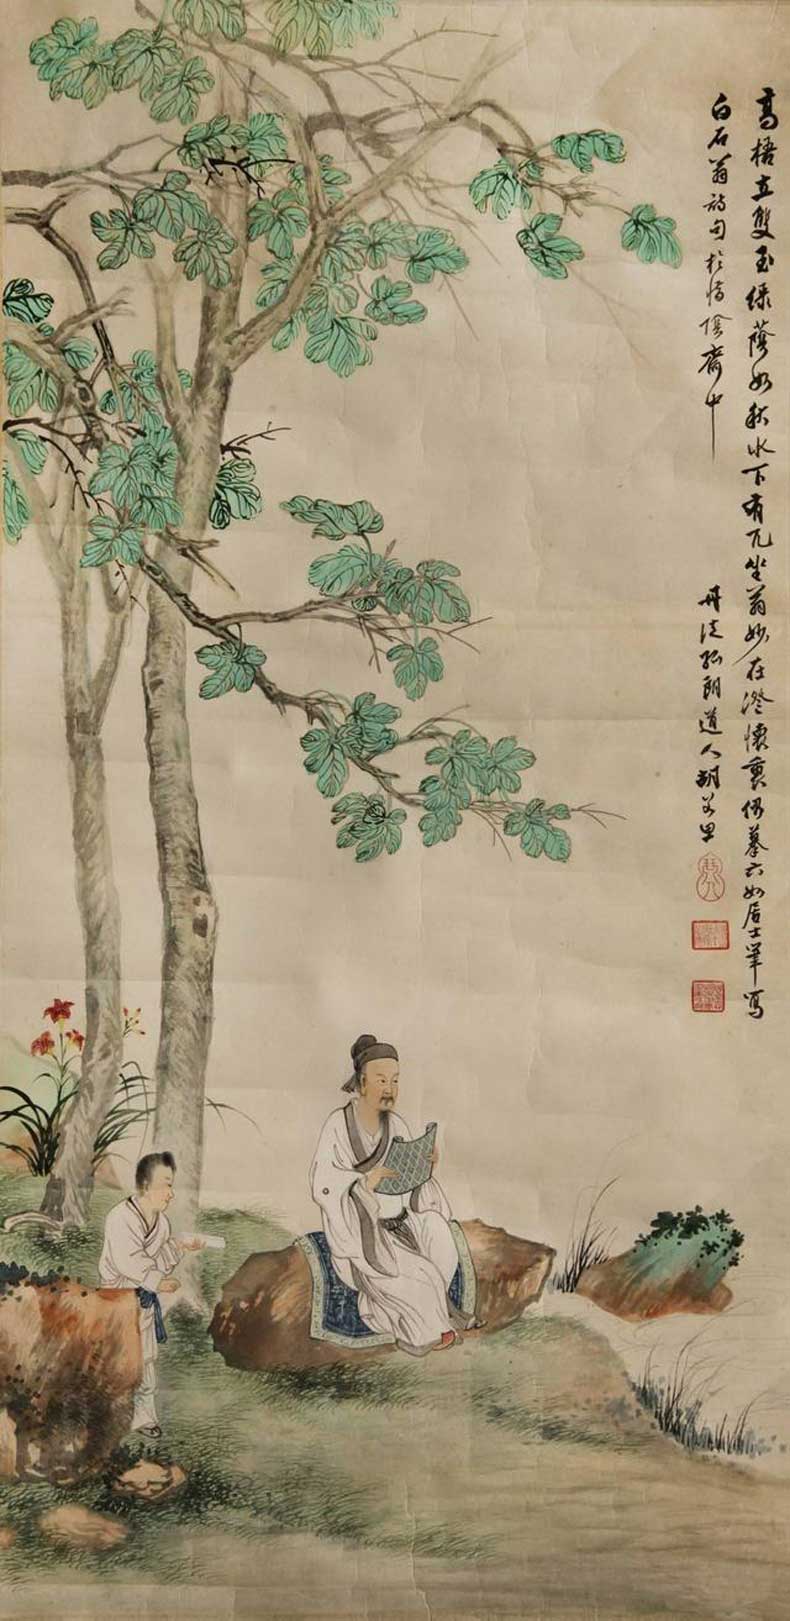 高梧立雙玉綠蔭如秋水下有兀坐翁妙在澄懷裏仿摹六如居士筆寫
白石翁詩句於惜陰齋中
丹徒孤朗道人胡